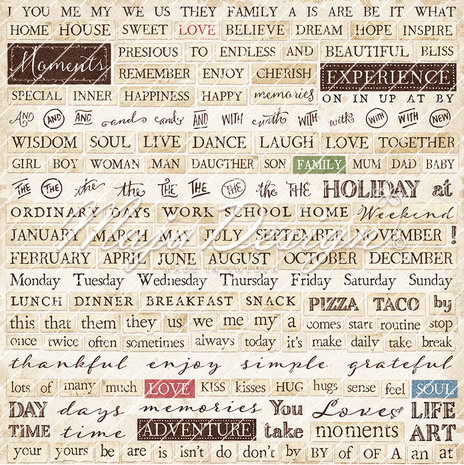 I YOU ME MY WE US THEY FAMILY A IS ARE BE IT WHAT
HOME HOUSE SWEET LOVE BELIEVE DREAM HOPE INSPIRE
Moments PRESIOUS TO ENDLESS AND BEAUTIFUL BLISS
REMEMBER ENJOY CHERISH EXPERIENCE
SPECIAL INNER HAPPINESS HAPPY memories ON IN UP AT BY
AND AND AND and and AND WITH with WITH with WITH WITH NEW
WISDOM SOUL LIVE DANCE LAUGH LOVE TOGETHER
GIRL BOY WOMAN MAN DAUGTHER SON FAMILY MUM DAD BABY
THE THE the the the THE THE THE the the THE HOLIDAY at
ORDINARY DAYS WORK SCHOOL HOME Weekend
JANUARY MARCH MAY JULY SEPTEMBER NOVEMBER !
FEBRUARY APRIL JUNE AUGUST OCTOBER DECEMBER
Monday Tuesday Wednesday Thursday Friday Saturday Sunday
LUNCH DINNER BREAKFAST SNACK PIZZA TACO by
this that them they us we me my a comes start routine stop
once twice often sometimes always today it's make daily take break
thankful enjoy simple grateful
lots of many much LOVE KISS kisses HUG hugs sense feel SOUL
DAY days memories You Love LIFE
TIME time ADVENTURE take moments ART
your yours be are is isn't do don't by OF of A an at
Maja Design